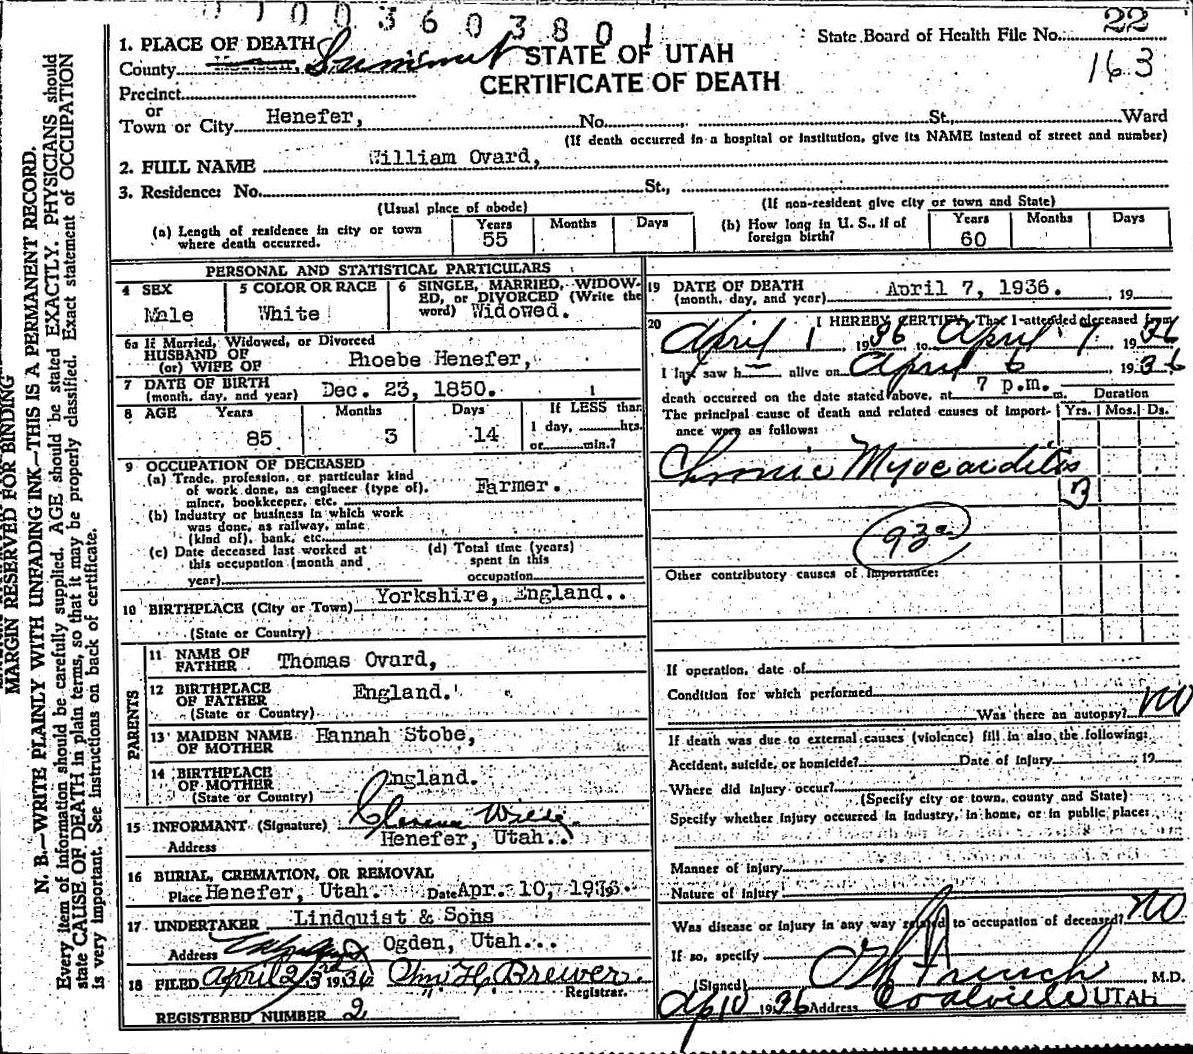 1003603801
State Board of Health File No. 22
163
1. PLACE OF DEATH
County Summit
STATE OF UTAH
CERTIFICATE OF DEATH
Precinct
or
Town or City Henefer, No. St., Ward
(If death occurred in a hospital or institution, give its NAME instead of street and number)
2. FULL NAME William Ovard,
3. Residence: No. St.,
(Usual place of abode)
(If non-resident give city or town and State)
(a) Length of residence in city or town where death occurred. Years 55 Months Days
(b) How long in U. S., if of foreign birth? Years 60 Months Days
PERSONAL AND STATISTICAL PARTICULARS
4 SEX Male
5 COLOR OR RACE White
6 SINGLE, MARRIED, WIDOWED, or DIVORCED (Write the word) Widowed.
6a If Married, Widowed, or Divorced
HUSBAND OF
(or) WIFE OF Phoebe Henefer,
7 DATE OF BIRTH
(month, day, and year) Dec. 23, 1850.
8 AGE Years 85 Months 3 Days 14
If LESS than
1 day, hrs.
or min.?
9 OCCUPATION OF DECEASED
(a) Trade, profession, or particular kind
of work done, as engineer (type of),
miner, bookkeeper, etc. Farmer.
(b) Industry or business in which work
was done, as railway, mine
(kind of), bank, etc.
(c) Date deceased last worked at
this occupation (month and
year)
(d) Total time (years)
spent in this
occupation
10 BIRTHPLACE (City or Town) Yorkshire, England..
(State or Country)
PARENTS
11 NAME OF
FATHER Thomas Ovard,
12 BIRTHPLACE
OF FATHER England.
(State or Country)
13 MAIDEN NAME
OF MOTHER Hannah Stobe,
14 BIRTHPLACE
OF MOTHER England.
(State or Country)
15 INFORMANT (Signature)
Address Henefer, Utah..
16 BURIAL, CREMATION, OR REMOVAL
Place Henefer, Utah. Date Apr. 10, 1936.
17 UNDERTAKER Lindquist & Sons
Address Ogden, Utah...
18 FILED April 23rd 1936 Wm H. Brewer.
Registrar.
REGISTERED NUMBER 2
19 DATE OF DEATH
(month, day, and year) April 7, 1936. , 19
20 I HEREBY CERTIFY, That I attended deceased from
April 1 1936 to April 7 1936
I last saw h alive on April 6 1936
death occurred on the date stated above, at 7 p.m. m.
The principal cause of death and related causes of importance were as follows:
Duration
Yrs. Mos. Ds.
Chronic Myocarditis
3
93a
Other contributory causes of importance:
If operation, date of
Condition for which performed
Was there an autopsy? NO
If death was due to external causes (violence) fill in also the following:
Accident, suicide, or homicide? Date of injury 19
Where did injury occur?
(Specify city or town, county and State)
Specify whether injury occurred in industry, in home, or in public place:
Manner of injury
Nature of injury
Was disease or injury in any way related to occupation of deceased? NO
If so, specify
(Signed) M.D.
Ap 10 1936 Address Coalville UTAH
MARGIN RESERVED FOR BINDING
N. B.—WRITE PLAINLY WITH UNFADING INK—THIS IS A PERMANENT RECORD.
Every item of information should be carefully supplied. AGE should be stated EXACTLY. PHYSICIANS should
state CAUSE OF DEATH in plain terms, so that it may be properly classified. Exact statement of OCCUPATION
is very important. See instructions on back of certificate.